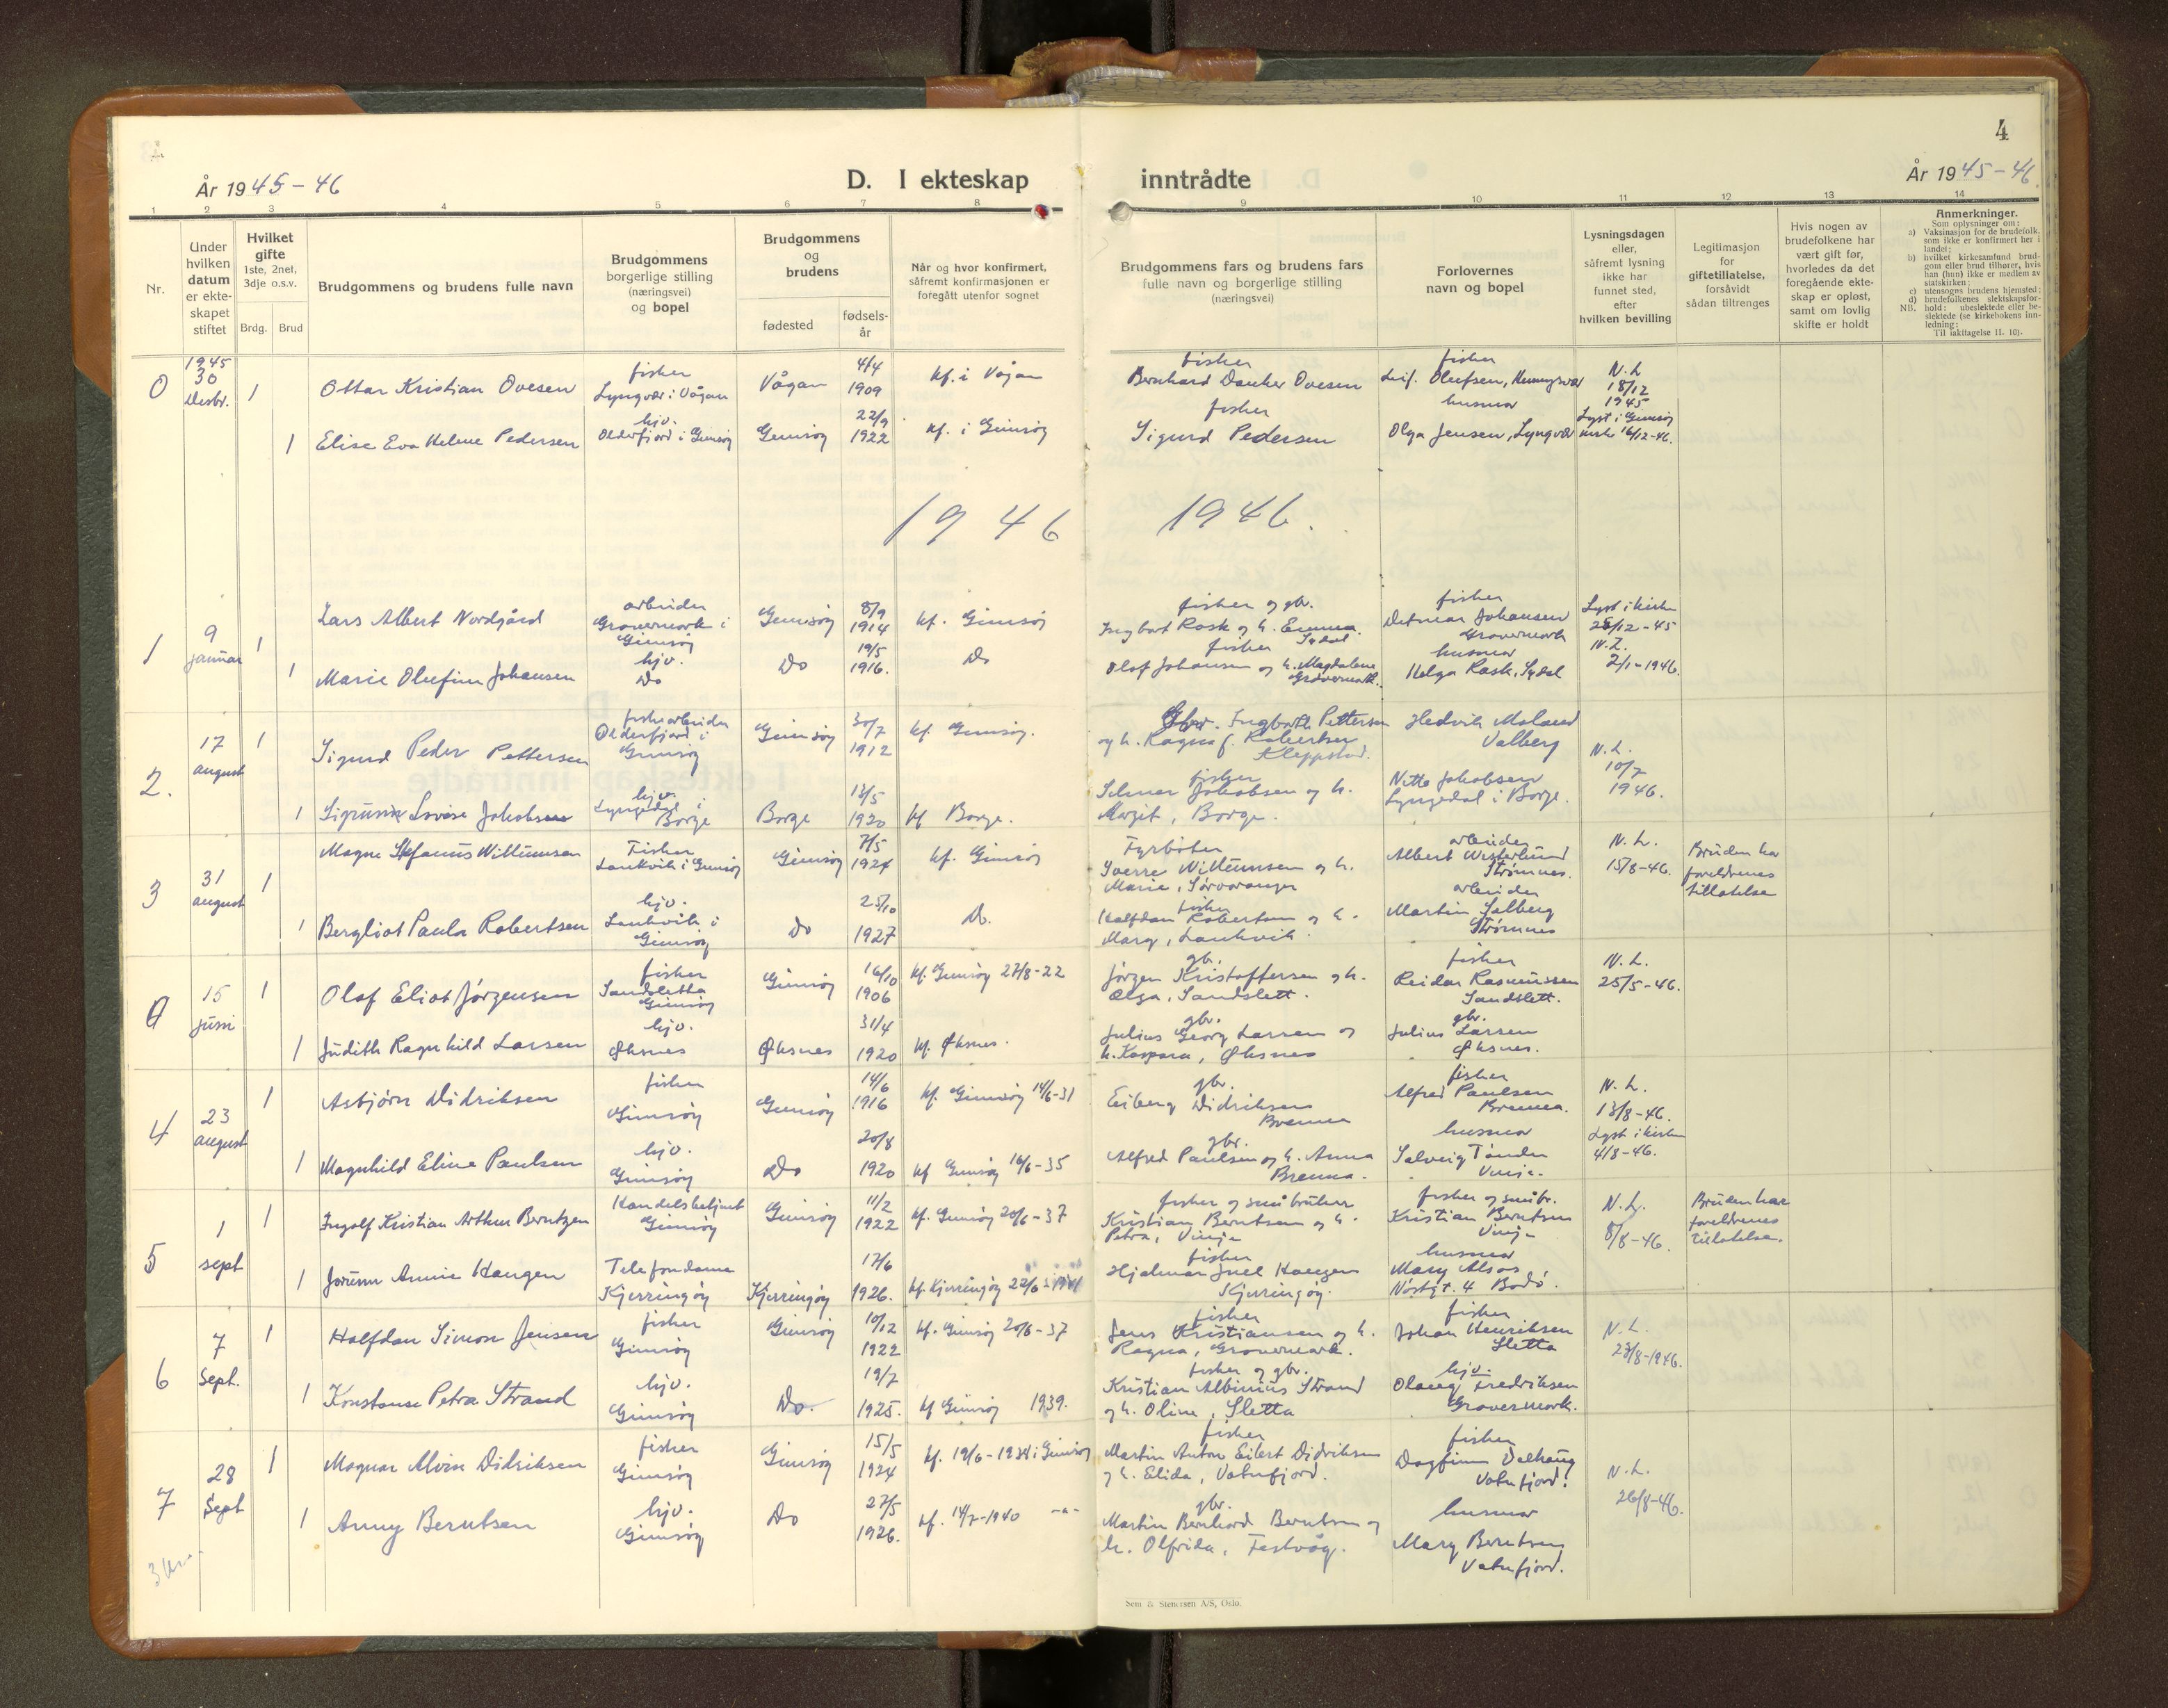 4
År 1945-46
D. I ekteskap inntrådte
År 1945-46.
1 2 3 4 5 6 7 8 9 10 11 12 13 14
Nr.
Under hvilken datum er ekte-skapet stiftet
Hvilket gifte
1ste, 2net, 3dje o.s.v.
Brdg. Brud
Brudgommens og brudens fulle navn
Brudgommens borgerlige stilling (næringsvei) og bopel
Brudgommens og brudens
fødested
fødsels-år
Når og hvor konfirmert, såfremt konfirmasjonen er foregått utenfor sognet
Brudgommens fars og brudens fars fulle navn og borgerlige stilling (næringsvei)
Forlovernes navn og bopel
Lysningsdagen eller, såfremt lysning ikke har funnet sted, efter hvilken bevilling
Legitimasjon for giftetillatelse, forsåvidt sådan tiltrenges
Hvis nogen av brudefolkene har vært gift før, hvorledes da det foregående ekte-skap er opløst, samt om lovlig skifte er holdt
Anmerkninger.
Som oplysninger om:
a) Vaksinasjon for de brudefolk, som ikke er konfirmert her i landet;
b) hvilket kirkesamfund brud-gom eller brud tilhører, hvis han (hun) ikke er medlem av statskirken;
c) utensogns brudens hjemsted;
d) brudefolkenes slektskapsfor-hold: ubeslektede eller be-slektede (se kirkebokens inn-ledning:
NB. Til iakttagelse II. 10).
0
1945
30
Desbr.
1
Ottar Kristian Ovesen
fisker
Lyngvær i Vågan
Vågan
4/4
1909
kf. i Vågan
fisker
Bernhard Danker Ovesen
fisker
Leif. Olufsen, Henningsvær
N.L
18/12
1945
1
Elise Eva Helene Pedersen
hjv.
Olderfjord i Gimsøy
Gimsøy
22/9
1922
kf. i Gimsøy
fisker
Sigurd Pedersen
husmor
Olga Jensen, Lyngvær
Lyst i Gimsøy
kirke 16/12-46.
1946
1946.
1
9
januar
1
Lars Albert Nordgård
arbeider
Gravermork i
Gimsøy
Gimsøy
8/9
1914
kf. Gimsøy
fisker og gbr.
Ingbart Rask og h. Emma.
Sydal
fisker
Detmar Johansen
Gravermork
Lyst i kirken
26/12-45
1
Marie Olufine Johansen
hjv.
Do
Do
19/5
1916.
Do
fisker
Olaf Johansen og h. Magdalene
Gravermark.
husmor
Helga Rask, Sydal
N.L.
2/1-1946.
2.
17
august
1
Sigurd Peder Pettersen
fiskearbeider
Olderfjord i
Gimsøy
Gimsøy
30/7
1912
kf. Gimsøy.
Gbr. Ingbarth Pettersen
og h. Ragna f. Robertsen
Kleppstad.
Hedvik Moland
Valberg
N.L.
10/7
1946.
1
Sigrunn Lovise Jakobsen
hjv.
Lyngedal i
Borge
Borge
13/5
1920
kf Borge.
fisker
Selmer Jakobsen og h.
Margit, Borge.
Nitte Jakobsen
Lyngedal i Borge.
3
31
august
1
Magne Stefanus Willumsen
Fisker
Laukvik i Gimsøy
Gimsøy
7/5
1924
kf. Gimsøy
Fyrbøter
Sverre Willumsen og h.
Marie, Sørvaranger
arbeider
Albert Westerlund
Strømnes.
N.L.
15/8-46.
Bruden har
foreldrenes
tillatelse
1
Bergliot Paula Robertsen
hjv.
Laukvik i
Gimsøy
do
25/10
1927
Do.
fisker
Halfdan Robertsen og h.
Mary, Laukvik.
arbeider
Martin Solberg
Strømnes
15
juni
1
Olaf Eliot Jørgensen
fisker
Sandsletta
Gimsøy
Gimsøy
16/10
1906
kf. Gimsøy 27/8-22
gb.
Jørgen Kristoffersen og h.
Olga, Sandslett.
fisker
Reidar Rasmussen
Sandslett.
N.L.
25/5-46.
1
Judith Ragnhild Larsen
hjv.
Øksnes
Øksnes
31/4
1920
kf. Øksnes.
gbr.
Julius Georg Larsen og
h. Kaspara, Øksnes
gbr.
Julius Larsen
Øksnes.
4
23
august
1
Asbjørn Didriksen
fisker
Gimsøy
Gimsøy
14/6
1916
kf. Gimsøy 14/6-31
gbr.
Eiberg Didriksen
Brenna
fisker
Alfred Paulsen
Brenna.
N.L.
13/8-46.
1
Magnhild Eline Paulsen
hjv.
Gimsøy
Do
20/8
1920
kf Gimsøy 16/6-35
gbr.
Alfred Paulsen og h. Anna
Brenna.
husmor
Solveig Tønder
Vinje.
Lyst i kirken
4/8-46.
5
1
sept
1
Ingolf Kristian Arthur Berntzen
Handelsbetjent
Gimsøy
Gimsøy
11/2
1922
kf. Gimsøy 20/6-37
fisker og småbruker
Kristian Berntsen og h.
Petra, Vinje
fisker og småbr.
Kristian Berntsen
Vinje
N.L.
8/8-46.
Bruden har
foreldrenes
tillatelse.
1
Jorunn Annie Haugen
Telefondame
Kjerringøy
Kjerringøy
17/6
1926.
kf. Kjerringøy 22/6-1941
fisker
Hjalmar Juel Haugen
Kjerringøy.
husmor
Mary Alsos
Nøstgt. 4 Bodø.
6
7
Sept.
1
Halfdan Simon Jensen
fisker
Gimsøy
Gimsøy
10/12
1922
kf. Gimsøy 20/6-37
fisker
Jens Kristiansen og h.
Ragna, Gravermark.
fisker
Johan Henriksen
Sletta
N.L.
23/8-1946.
1
Konstanse Petra Strand
hjv.
Gimsøy
Do.
19/7
1925.
kf Gimsøy 1939.
fisker og gbr.
Kristian Albinius Strand
og h. Oline, Sletta
hjv.
Olaug Fredriksen
Gravermork.
7
28
Sept
1
Magnar Alvin Didriksen
fisker
Gimsøy
Gimsøy
15/5
1924
kf. 19/6-1938 i Gimsøy
fisker
Martin Anton Eilert Didriksen
og h. Elida, Vatnfjord.
fisker
Dagfinn Dalhaug
Vatnfjord.
N.L.
26/8-46.
1
Anny Berntsen
hjv.
Gimsøy
Do
27/5
1926.
kf. 14/7-1940 -"-
gbr.
Martin Bernhard Berntsen og
h. Olfrida, Festvåg.
husmor
Mary Berntsen
Vatnfjord.
Sem & Stenersen A/S, Oslo.